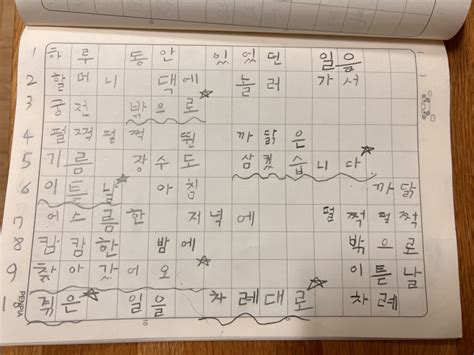 1 하루 동안 있었던 일을
2 할머니 댁에 놀러 가서
3 궁전 밖으로
4 펄쩍펄쩍 뛴 까닭은
5 기름 장수도 삼켰습니다
6 이튿날 아침 까닭
7 어스름한 저녁에 펄쩍펄쩍
8 캄캄한 밤에 밖으로
9 찾아갔어요 이튿날
겪은 일을 차례대로 차례
PENBIA